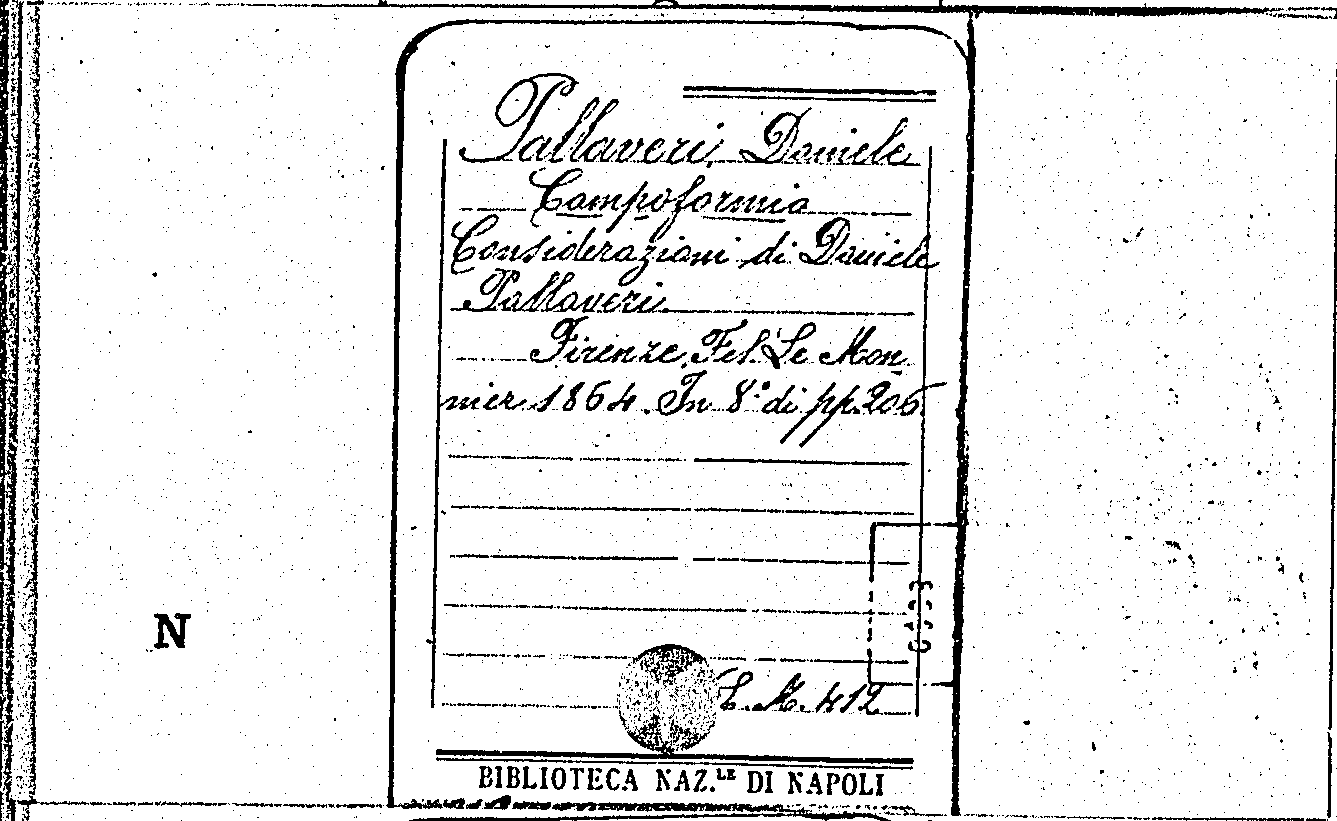 Pallaveri, Daniele
Campoformio
Considerazioni di Daniele
Pallaveri.
Firenze, Fel. Le Mon
nier 1864. In 8.° di pp. 206
N
L. M. 412
BIBLIOTECA NAZ.LE DI NAPOLI